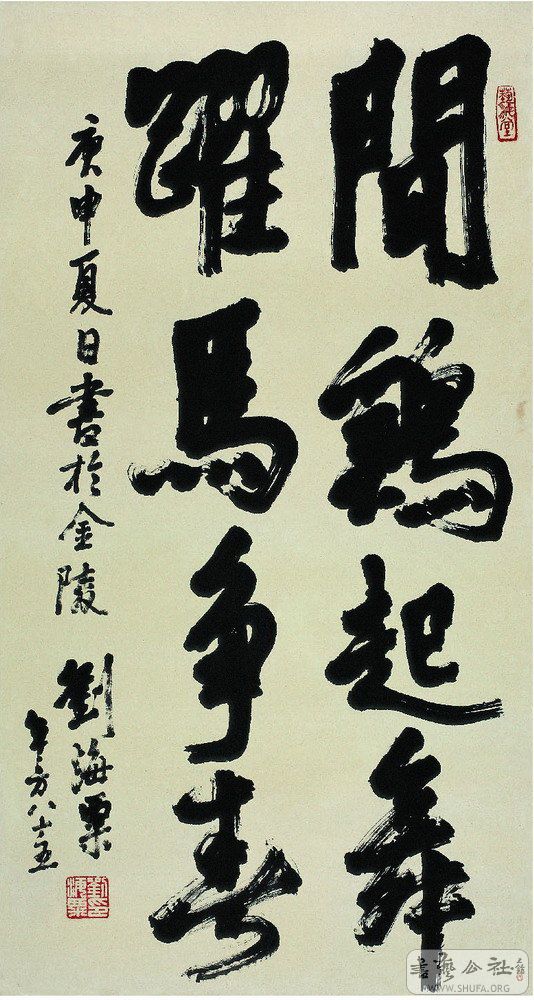 聞鷄起舞
躍馬争春
庚申夏日書於金陵
劉海粟
年方八十五
書藝公社
WWW.SHUFA.ORG